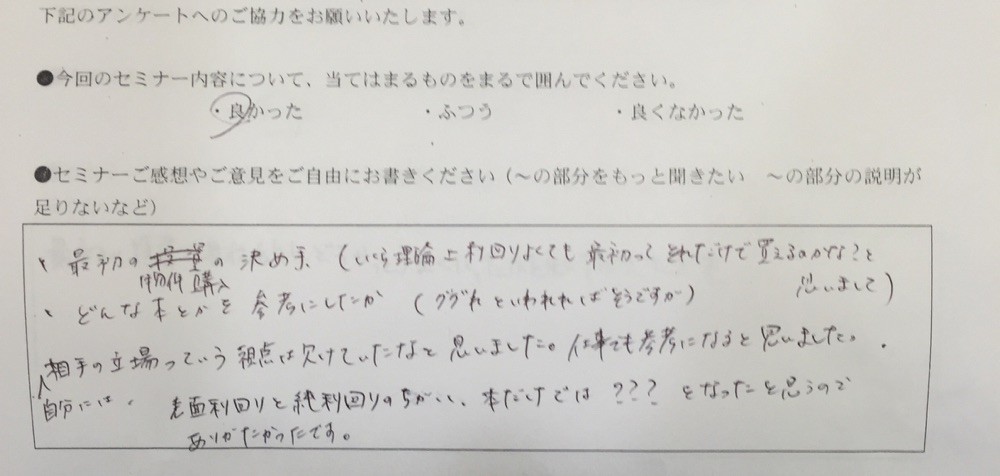 下記のアンケートへのご協力をお願いいたします。
●今回のセミナー内容について、当てはまるものをまるで囲んでください。
・良かった ・ふつう ・良くなかった
●セミナーご感想やご意見をご自由にお書きください（～の部分をもっと聞きたい　～の部分の説明が
足りないなど）
、最初の の決め手（いくら理論上利回りよくても最初ってそれだけで買えるのかな？と
物件購入 思いまして）
、どんな本とかを参考にしたか（ググれといわれればそうですが）
相手の立場っていう視点は欠けていたなと思いました。仕事でも参考になると思いました。
自分には、表面利回りと純利回りのちがい、本だけでは???となったと思うので
ありがたかったです。